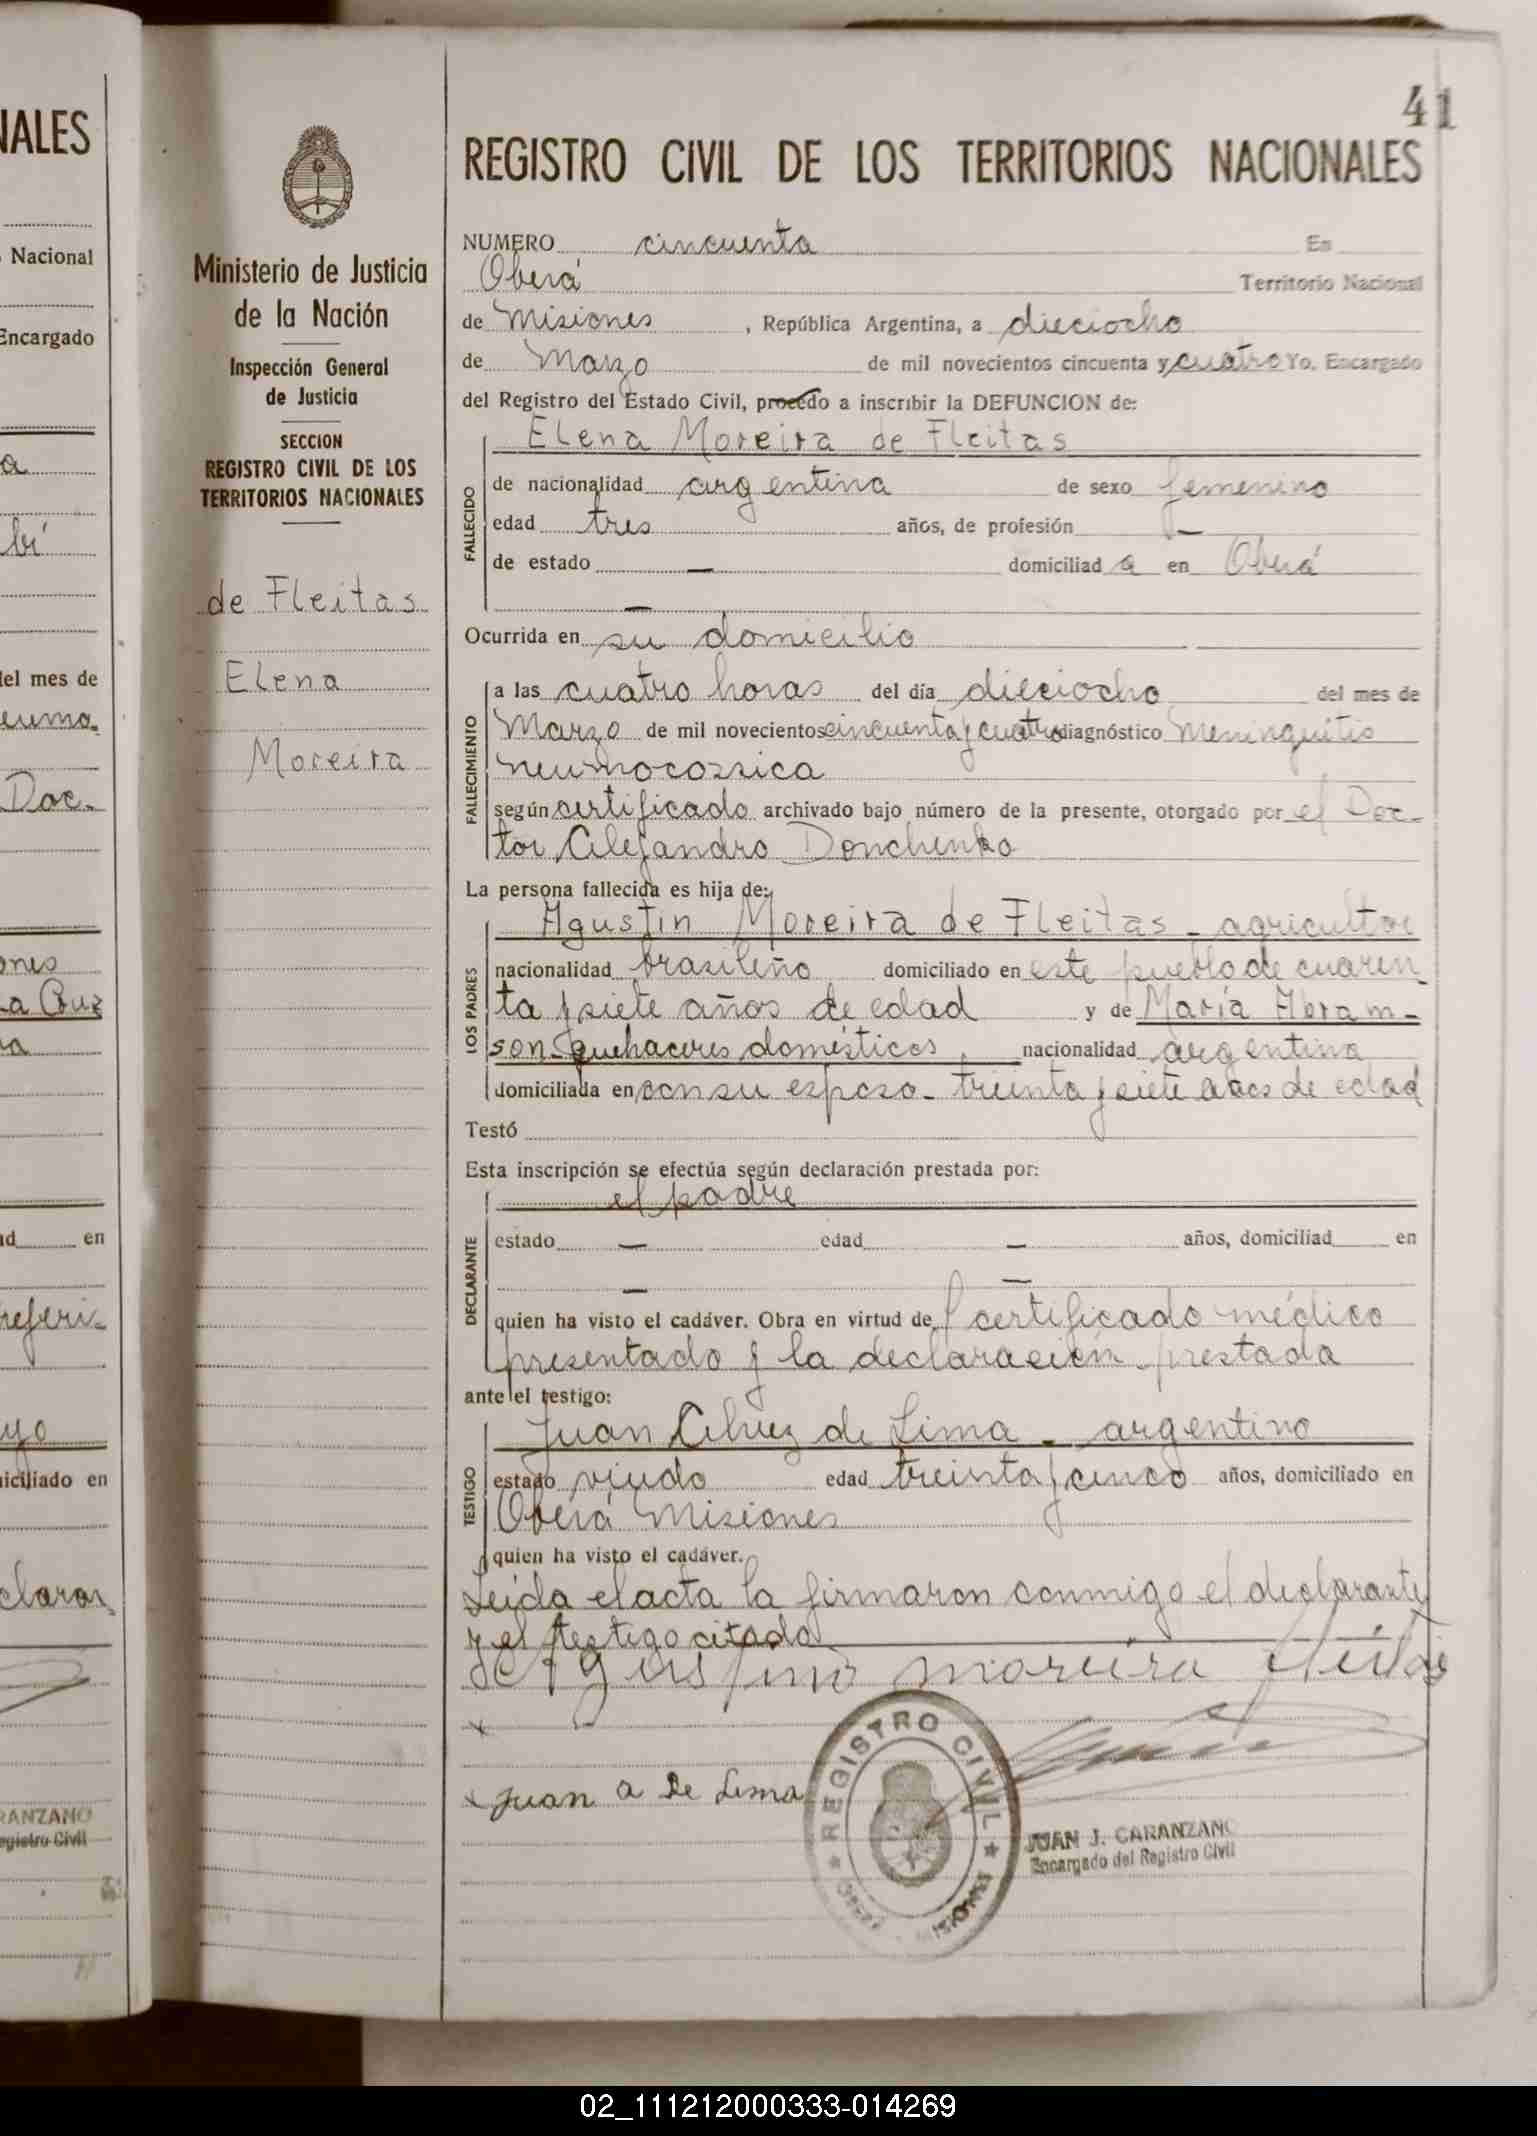 41
REGISTRO CIVIL DE LOS TERRITORIOS NACIONALES
NUMERO cincuenta En
Oberá Territorio Nacional
de Misiones, República Argentina, a dieciocho
de Marzo de mil novecientos cincuenta y cuatro Yo, Encargado
del Registro del Estado Civil, procedo a inscribir la DEFUNCION de:
FALLECIDO
Elena Moreira de Fleitas
de nacionalidad argentina de sexo femenino
edad tres años, de profesión —
de estado — domiciliad a en Oberá
—
Ocurrida en su domicilio
FALLECIMIENTO
a las cuatro horas del día dieciocho del mes de
Marzo de mil novecientos cincuenta y cuatro diagnóstico Meninguitis
neumocossica
según certificado archivado bajo número de la presente, otorgado por el Doc-
tor Alejandro Donchenko
La persona fallecida es hija de:
LOS PADRES
Agustin Moreira de Fleitas - agricultor
nacionalidad brasileño domiciliado en este pueblo de cuaren-
ta y siete años de edad y de María Abram-
son - quehaceres domésticos, nacionalidad argentina
domiciliada en con su esposo - treinta y siete años de edad
Testó
Esta inscripción se efectúa según declaración prestada por:
DECLARANTE
el padre
estado — edad — años, domiciliad en
— —
quien ha visto el cadáver. Obra en virtud de certificado médico
presentado y la declaración prestada
ante el testigo:
TESTIGO
Juan Alvez de Lima - argentino
estado viudo edad treinta y cinco años, domiciliado en
Oberá Misiones
quien ha visto el cadáver.
Leida el acta la firmaron conmigo el declarante
y el testigo citado
Agustino moreira fleitas
x
x Juan a de Lima
REGISTRO CIVIL
MISIONES
JUAN J. CARANZANO
Encargado del Registro Civil
Ministerio de Justicia
de la Nación
Inspección General
de Justicia
SECCION
REGISTRO CIVIL DE LOS
TERRITORIOS NACIONALES
de Fleitas
Elena
Moreira
NALES
Nacional
Encargado
del mes de
Doc-
La Cruz
en
iciliado en
RANZANO
egistro Civil
02_111212000333-014269